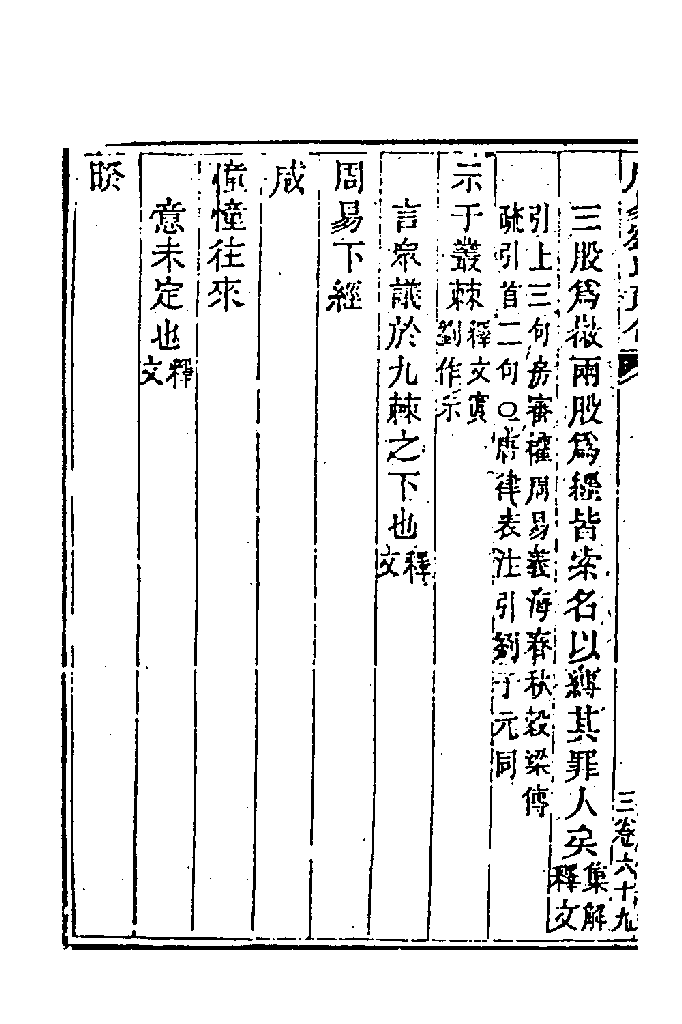 三股為徽兩股為纆皆索名以縛其罪人矣集解釋文
引上三句房審權周易義海春秋穀梁傳
疏引首二句○唐律表注引劉子元同
示于叢棘釋文寘劉作示
言眾議於九棘之下也釋文
周易下經
咸
憧憧往來
意未定也釋文
睽
三卷六十九